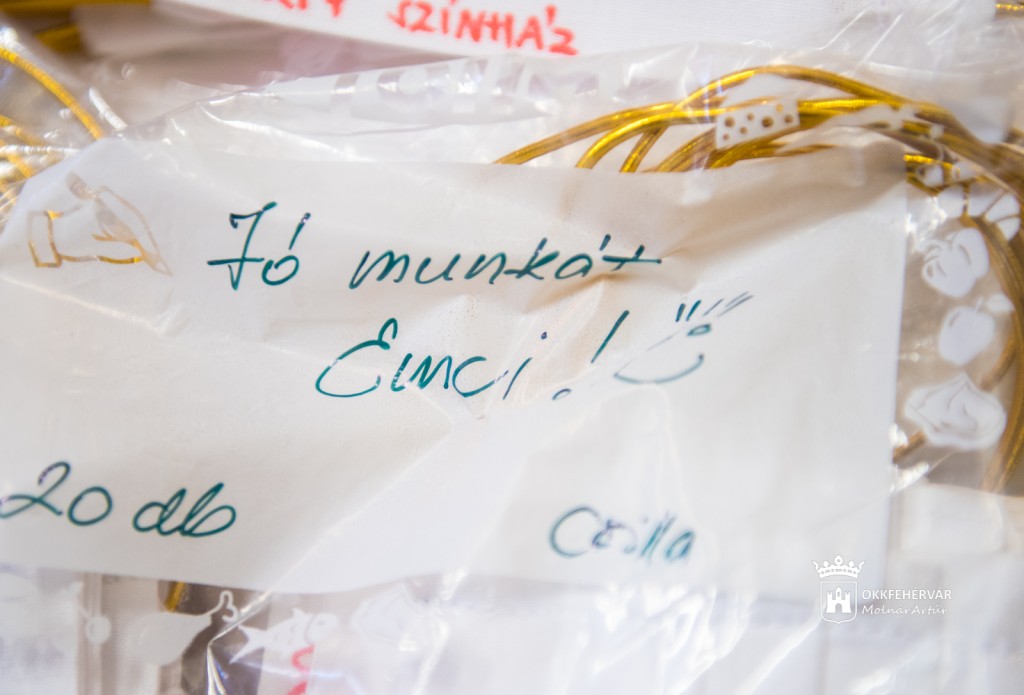 SZÍNHÁZ
Jó munkát
Emci!
20 db
Csilla
OKKFEHERVAR
Molnár Artúr